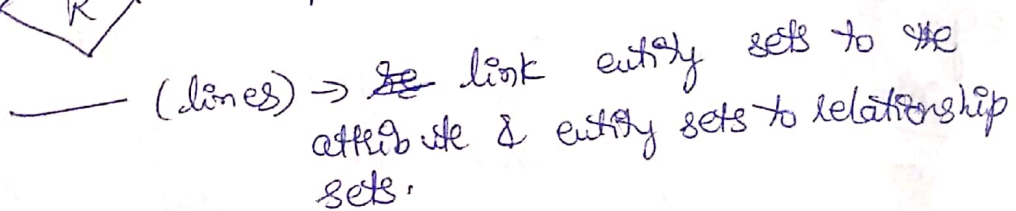 R
— (lines) → link entity sets to the
attribute & entity sets to relationship
sets.